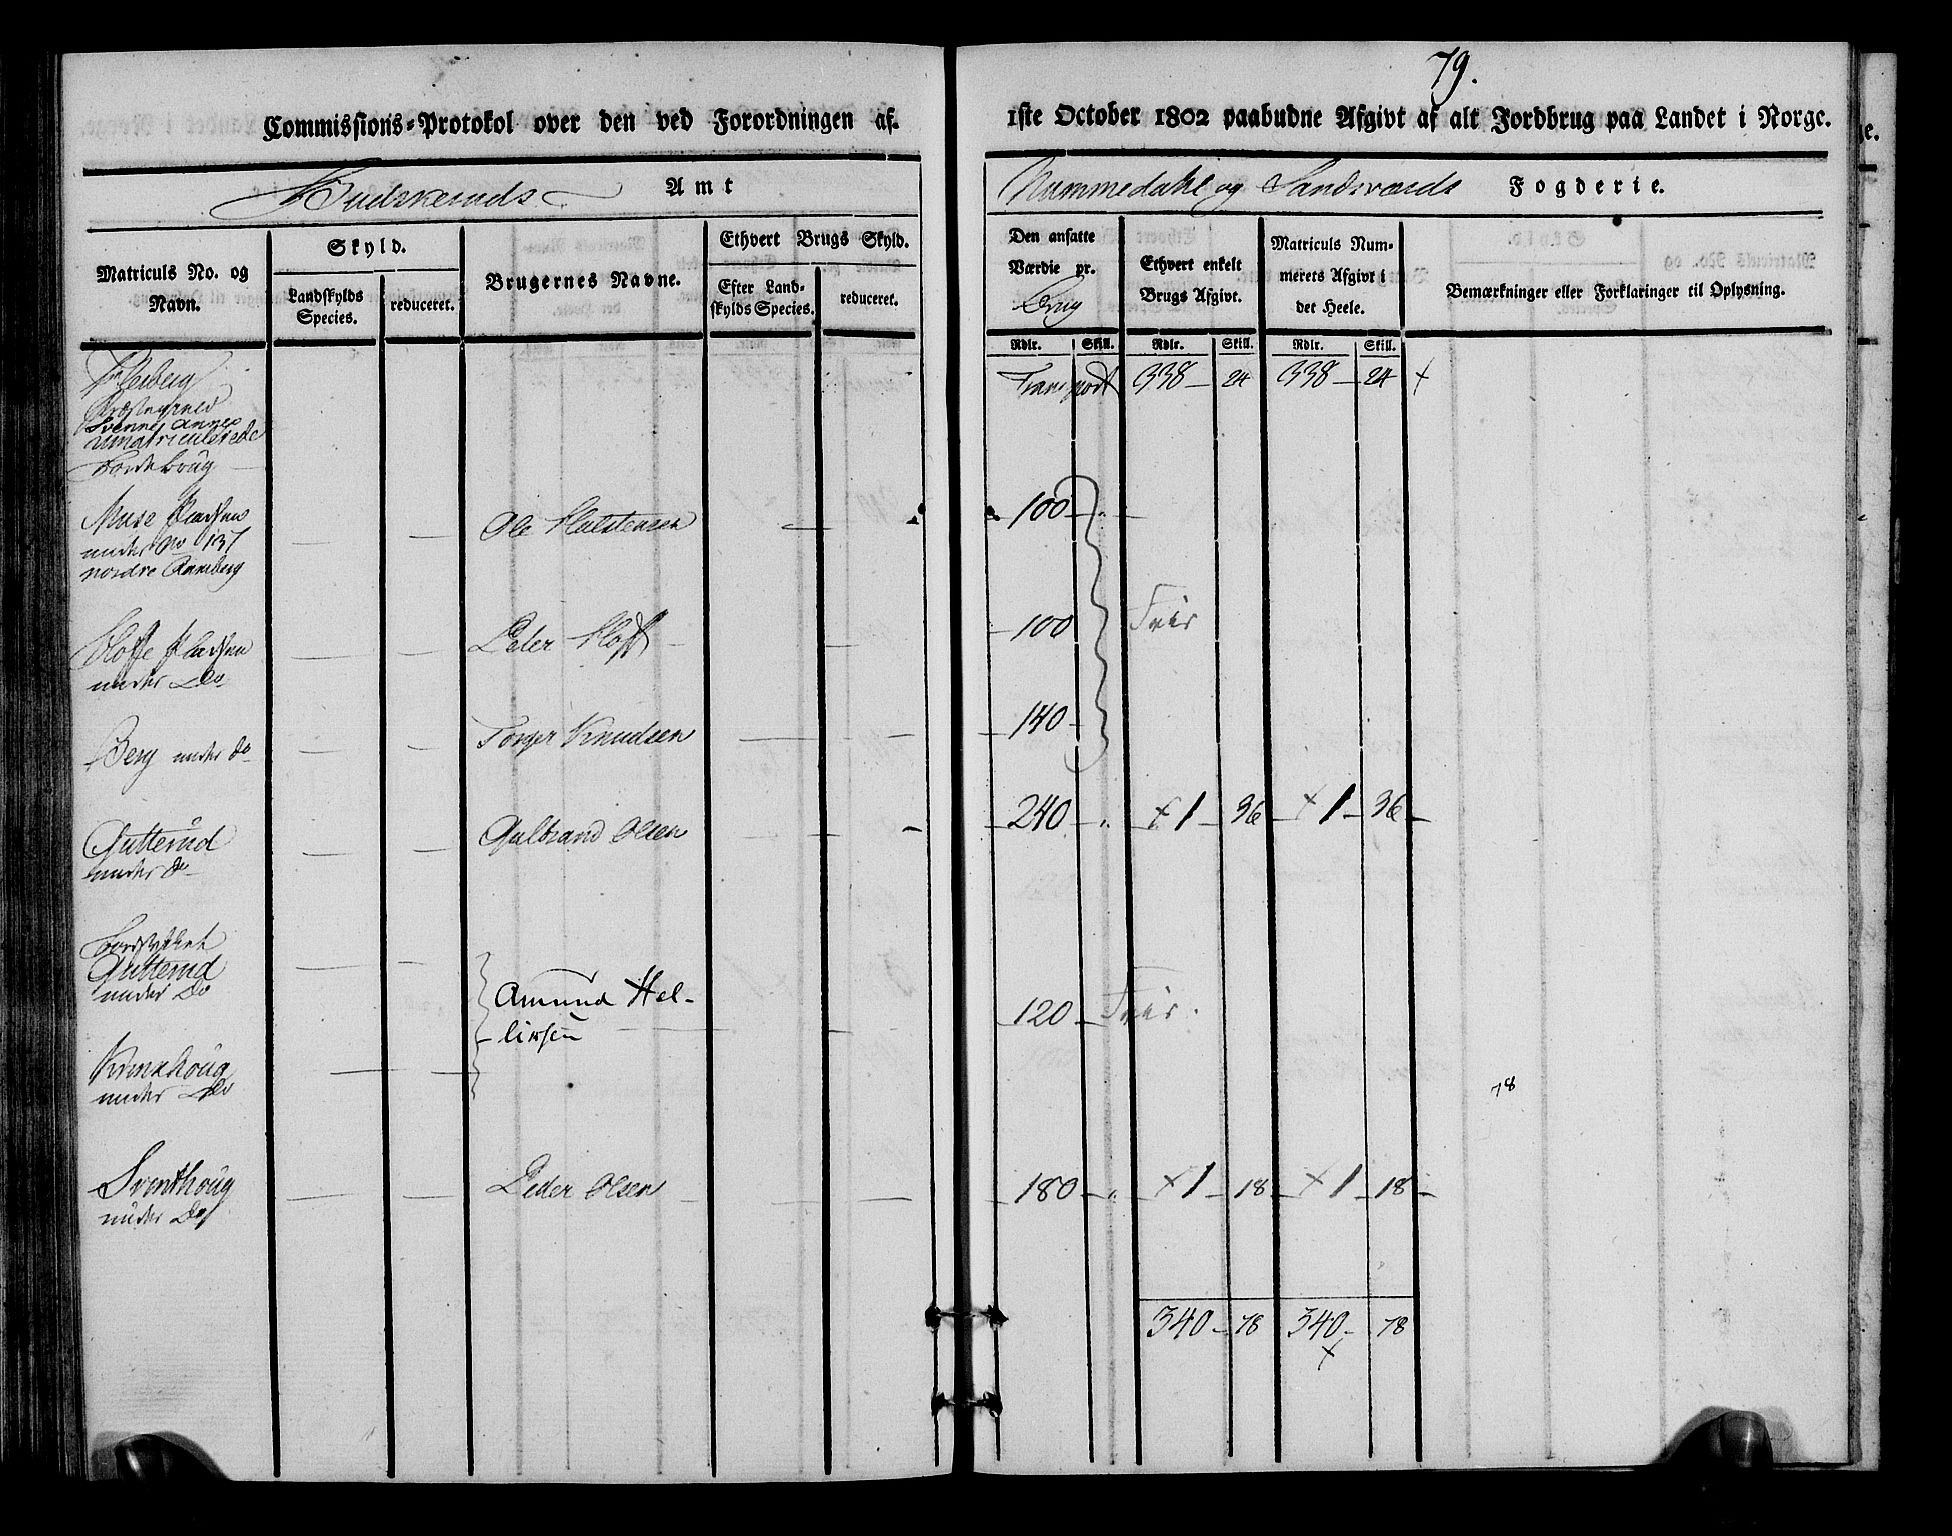 79.
Commissions-Protokol over den ved Forordningen af
1ste October 1802 paabudne Afgivt af alt Jordbrug paa Landet i Norge.
Budskeruds Amt
Nummedahl og Sandsværds Fogderie.
Matriculs No. og Navn.
Skyld.
Landskylds Species.
reduceret.
Brugernes Navne.
Ethvert Brugs Skyld.
Efter Landskylds Species.
reduceret.
Den ansatte Værdie pr. Brug
Ethvert enkelt Brugs Afgivt.
Matriculs Nummerets Afgivt i det Heele.
Bemærkninger eller Forklaringer til Oplysning.
Rdlr. Skill. Rdlr. Skill. Rdlr. Skill.
Flesberg
Præstegield
Svenne Annex
Umatriculerede
Jordebrug
Transport 338 - 24 338 - 24 +
Muse Pladsen
under No 137
nordre Aaneberg
Ole Halstensen
100 -
Hoffe Pladsen
under Do
Peder Hoff
100
Frir
Berg under do
Torger Knudsen
140 -
Gutterud
under do
Gulbrand Olsen
240 - + 1 - 36 - + 1 - 36 -
Jordstykket
Gutterud
under Do
Amund Hel-
liksen
120 - Frir.
Krinkhoug
under Do
78
Sventhoug
under Do
Peder Olsen
180 - + 1 - 18 - + 1 - 18 -
340 - 78 340 - 78
+